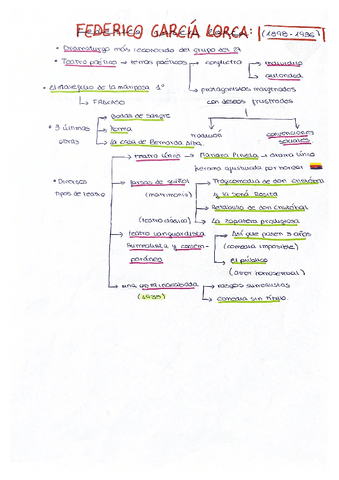 FEDERICO GARCÍA LORCA: (1898-1936)
• Dramaturgo más reconocido del grupo del 27
• Teatro poético → temas poéticos → conflicto → individuo
→ autoridad
→ protagonistas marginados
con deseos frustrados
• El maleficio de la mariposa 1º
→ FRACASO
tradición
convenciones
sociales
• 3 últimas
obras
→ Bodas de sangre
→ Yerma
→ La casa de Bernarda Alba.
• Diversos
tipos de teatro
→ teatro lírico → Mariana Pineda → drama lírico
heroína ajusticiada por bordar
→ farsas de guiñol
(matrimonio)
(teatro clásico)
→ Tragicomedia de don Cristóbal
y la señá Rosita
→ Retablillo de don Cristóbal
→ La zapatera prodigiosa
→ teatro vanguardista
surrealista y contem-
poráneo
→ Así que pasen 5 años
(comedia imposible)
→ el público
(amor homosexual)
→ una inacabada
(1935)
→ rasgos surrealistas
→ comedia sin título.